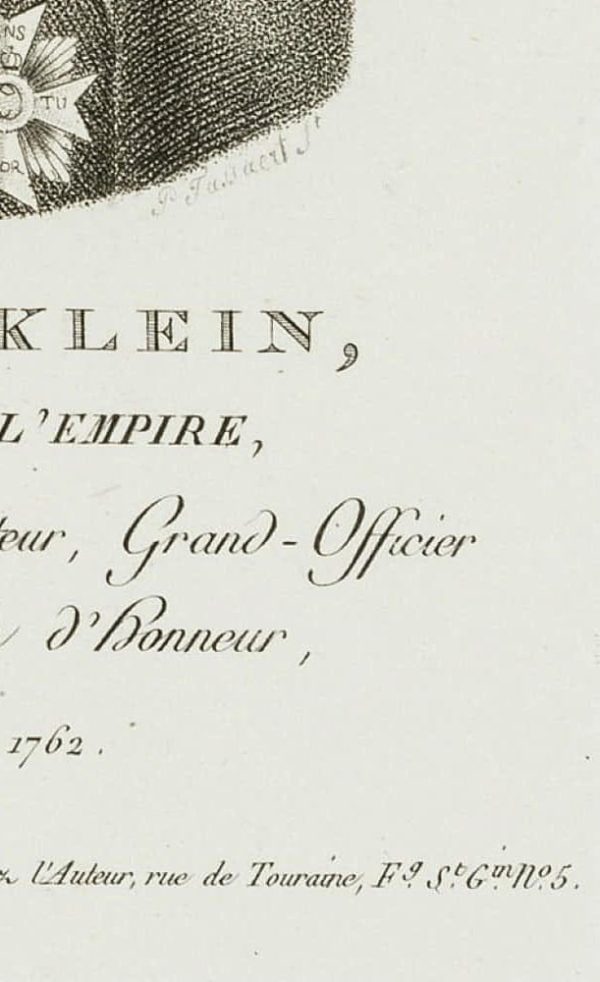 NS
TU
OR
P. Tassaert S.t
KLEIN,
L'EMPIRE,
teur, Grand-Officier
d'Honneur,
1762.
l'Auteur, rue de Touraine, F.g S.t G.in N.o 5.